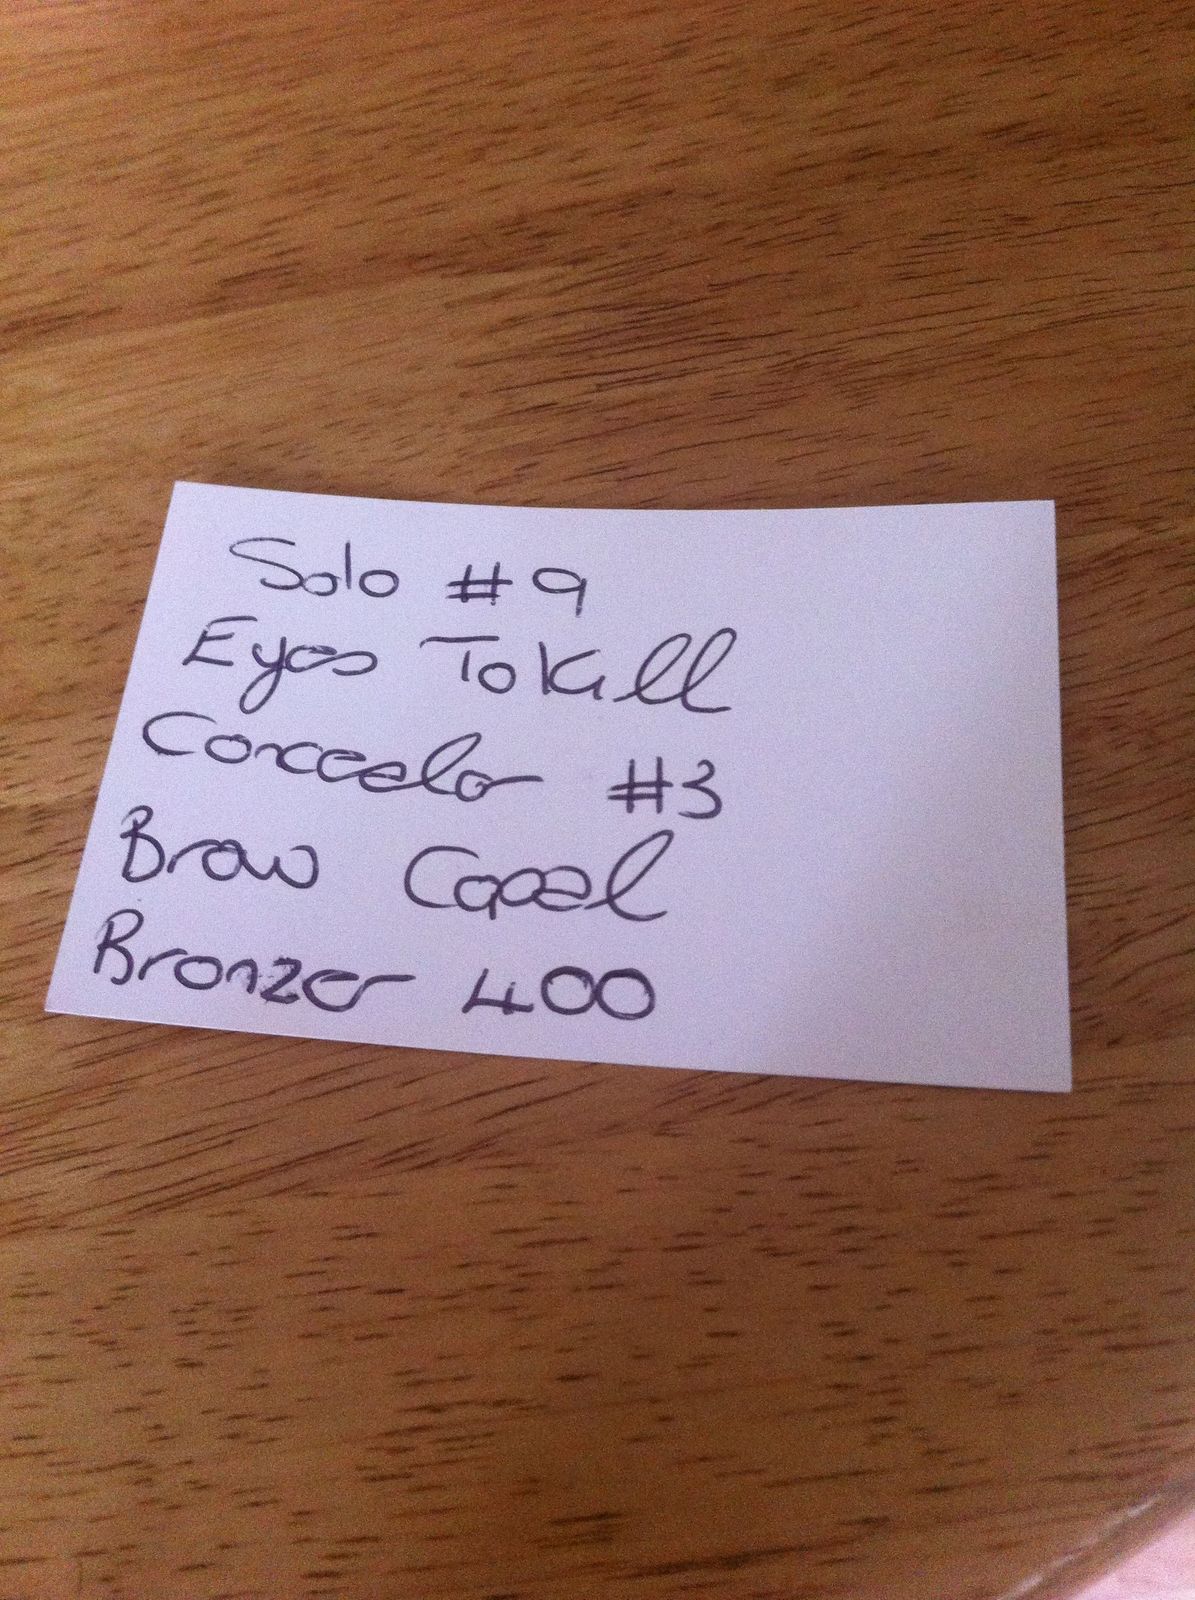 Solo #9
Eyes To Kill
Concealor #3
Brow
Bronzer 400